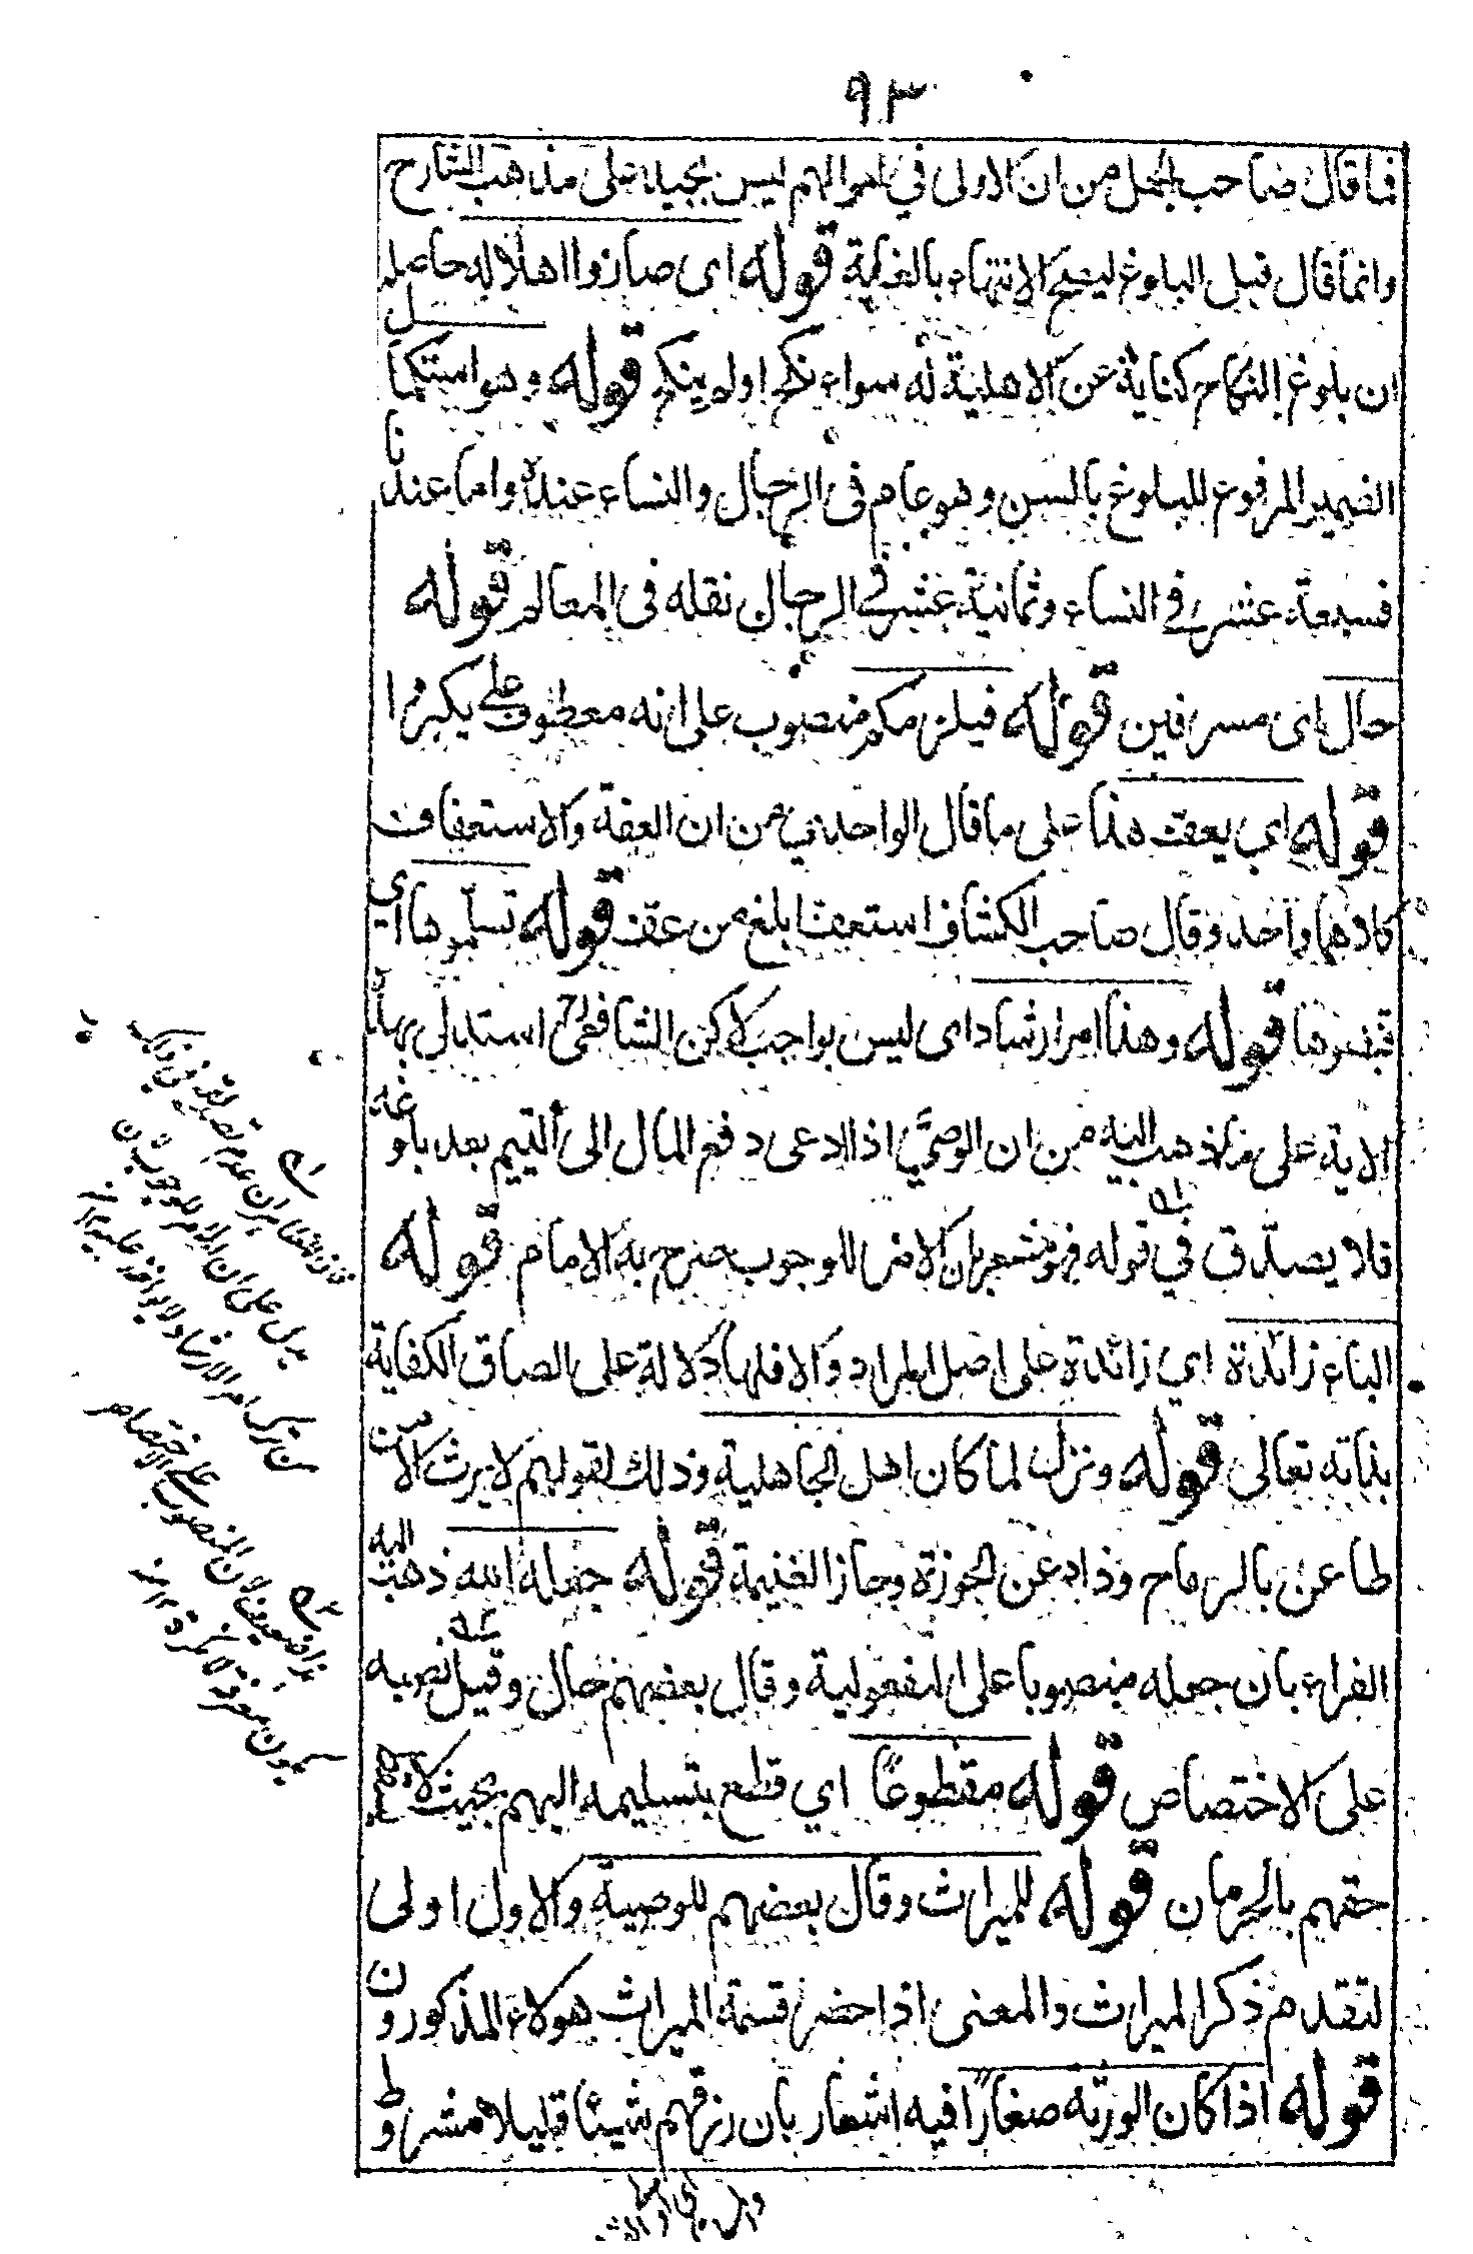 ٩٣
فما قال صاحب الجمل من ان الاولى في اموالهم ليس بجيد على مذهب الشارح
وانما قال قبل البلوغ ليصح الانتهاء بالغاية قوله اى صاروا اهلا له حاصله
ان بلوغ النكاح كناية عن الاهلية له سواء نكح اولم ينكح قوله وهو استكمال
الضمير المرفوع للبلوغ بالسن وهو عام فى الرجال والنساء عنده واما عندنا
فسبعة عشر في النساء وثمانية عشر في الرجال نقله فى المعالم قوله
حال اى مسرفين قوله فيلزمكم منصوب على انه معطوف على يكبروا
قوله اي يعف هذا على ما قال الواحدي من ان العفة والاستعفاف
كلاهما واحد وقال صاحب الكشاف استعف ابلغ من عف قوله تسلموها اي
قبضوها قوله وهذا امر ارشاد اى ليس بواجب لاكن الشافعىؒ استدل بهذه
الاية على ما ذهب اليه من ان الوصيّ اذا ادعى دفع المال الى اليتيم بعد بلوغه
فلا يصدّق في قوله فهو مشعر بان الامر للوجوب صرح به الامام قوله
الباء زائدة اي زائدة على اصل المراد والا فلها دلالة على الصاق الكفاية
بذاته تعالى قوله ونزل لما كان اهل الجاهلية وذلك لقولهم لا يرث الا من
طاعن بالرماح وذاد عن الحوزة وحاز الغنيمة قوله جعله الله ذهب اليه
الفراء بان جعله منصوبا على المفعولية وقال بعضهم حال وقيل نصبه
على الاختصاص قوله مقطوعًا اي قطع بتسليمه اليهم بحيث لا
حقهم بالحرمان قوله للميراث وقال بعضهم للوصية والاول اولى
لتقدم ذكر الميراث والمعنى اذا حضر قسمة الميراث هولاء المذكورون
قوله اذا كان الورثة صغارًا فيه اشعار بان رزقهم شيئا قليلا مشروط